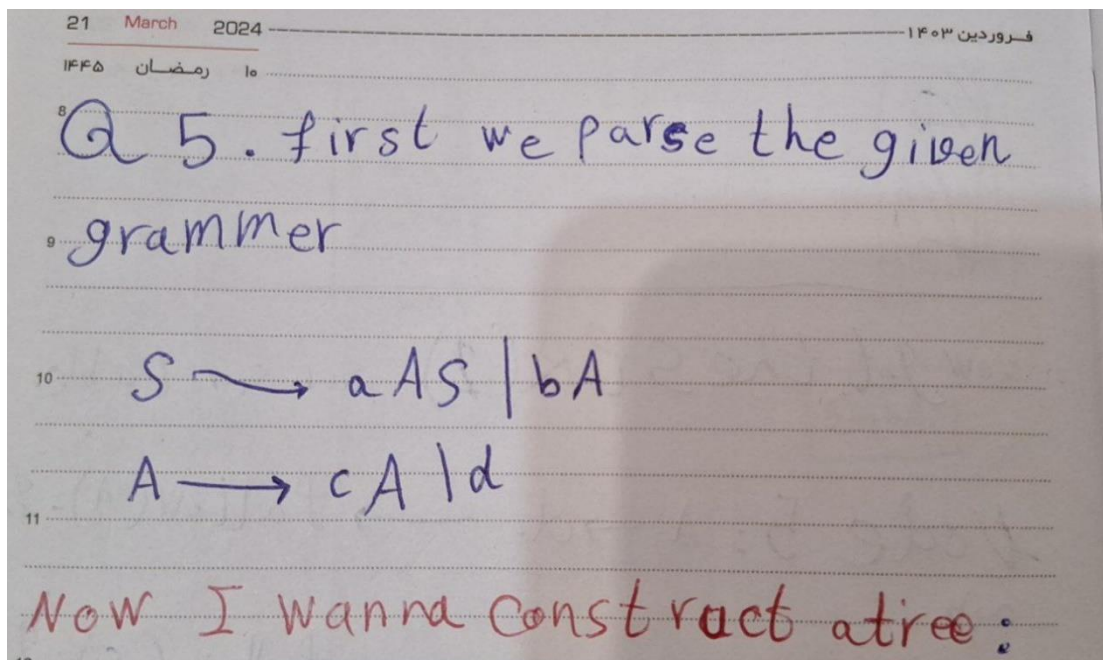 21 March 2024 فـروردین ۱۴۰۳
۱۴۴۵ رمـضـان ۱۰
8 Q 5. first we parse the given
9 grammer
10 S → aAS | bA
A → cA | d
11
Now I wanna constract atree: